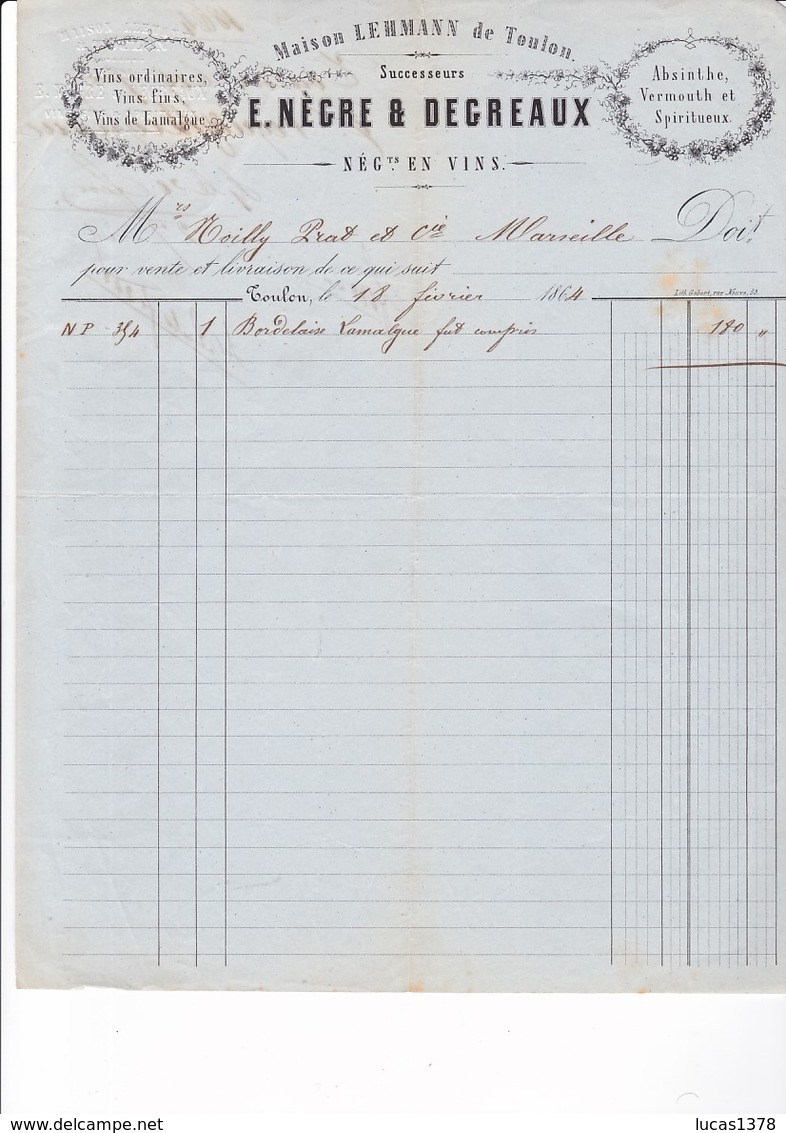 Maison LEHMANN de Toulon.
Successeurs
E. NÈGRE & DEGREAUX
NÉG.TS EN VINS.
Vins ordinaires,
Vins fins,
Vins de Lamalgue
Absinthe,
Vermouth et
Spiritueux.
Mrs Noilly Prat et Cie Marseille Doit
pour vente et livraison de ce qui suit
Lith. Gobert, rue Neuve, 53.
Toulon, le 18 février 1864
NP 354 1 Bordelaise Lamalgue fut compris 120 "
lucas1378